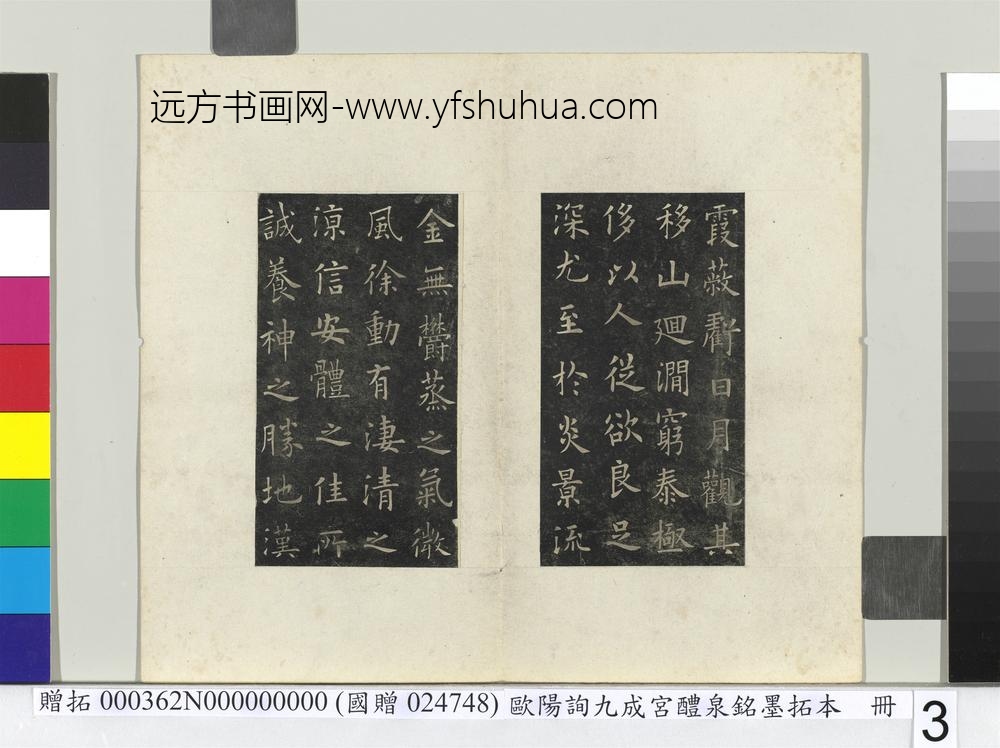 远方书画网-www.yfshuhua.com
霞蔽虧日月觀其
移山迴澗窮泰極
侈以人從欲良足
深尤至於炎景流
金無欝蒸之氣微
風徐動有淒清之
涼信安體之佳所
誠養神之勝地漢
贈拓 000362N000000000 (國贈 024748) 歐陽詢九成宮醴泉銘墨拓本 冊
3